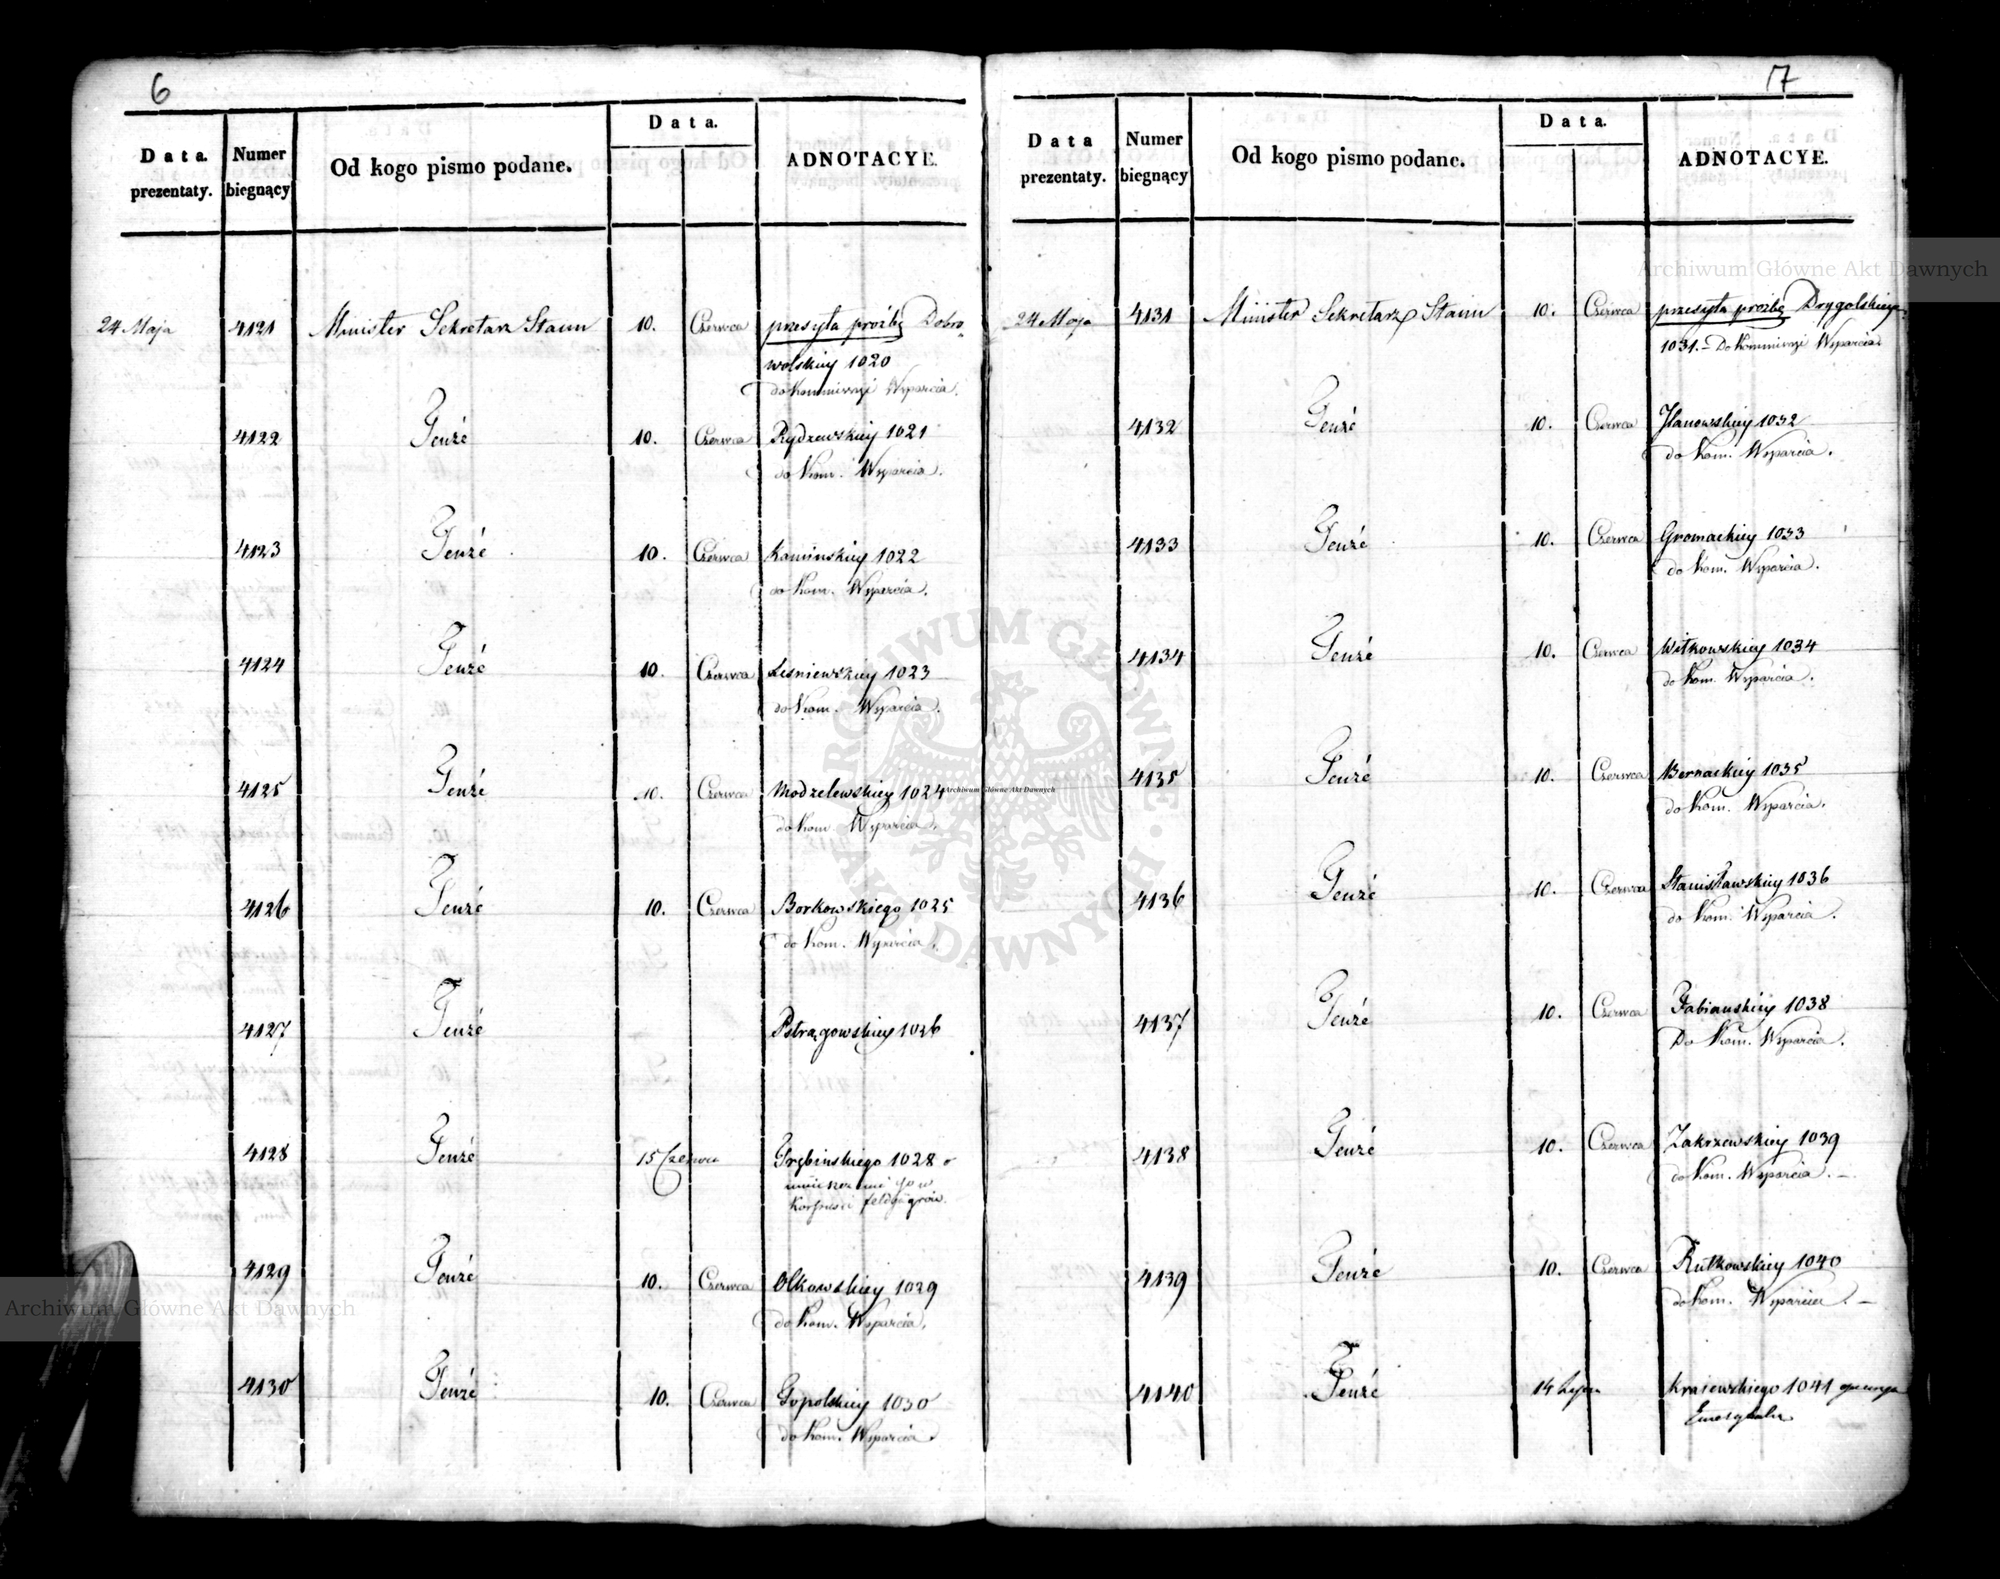 6
Data prezentaty.
Numer biegnący
Od kogo pismo podane.
Data.
ADNOTACYE.
24 Maja 4121 Minister Sekretarz Stanu 10. Czerwca przesyła prośbę Dobro-
wolskiey 1020
do Kommissyi Wsparcia.
4122 Tenże 10. Czerwca Rydzewskiey 1021
do Kom. Wsparcia.
4123 Tenże 10. Czerwca Kaminskiey 1022
do Kom. Wsparcia.
4124 Tenże 10. Czerwca Lesniewskiey 1023
do Kom. Wsparcia.
4125 Tenże 10. Czerwca Modzelewskiey 1024
do Kom Wsparcia.
4126 Tenże 10. Czerwca Borkowskiego 1025
do Kom. Wsparcia.
4127 Tenże Pstrągowskiey 1026
4128 Tenże 15 Czerwca Grębinskiego 1028 o
umieszczenie go w
Korpusie feldjegrów.
4129 Tenże 10. Czerwca Olkowskiey 1029
do Kom. Wsparcia.
4130 Tenże 10. Czerwca Topolskiey 1030
do Kom. Wsparcia.
7
Data prezentaty.
Numer biegnący
Od kogo pismo podane.
Data.
ADNOTACYE.
24 Maja 4131 Minister Sekretarz Stanu 10. Czerwca przesyła prośbę Drygolskiey
1031. – Do Kommissyi Wsparcia.
4132 Tenże 10. Czerwca 1032
do Kom. Wsparcia.
4133 Tenże 10. Czerwca Gromackiey 1033
do Kom. Wsparcia.
4134 Tenże 10. Czerwca Witkowskiey 1034
do Kom. Wsparcia.
4135 Tenże 10. Czerwca Bernackiey 1035
do Kom. Wsparcia.
4136 Tenże 10. Czerwca Stanisławskiey 1036
do Kom. Wsparcia.
4137 Tenże 10. Czerwca Fabianskiey 1038
Do Kom. Wsparcia.
4138 Tenże 10. Czerwca Zakrzewskiey 1039
do Kom. Wsparcia. –
4139 Tenże 10. Czerwca Rutkowskiey 1040
do Kom. Wsparcia. –
4140 Tenże 14 Lipca Kraiewskiego 1041
Archiwum Główne Akt Dawnych
Archiwum Główne Akt Dawnych
Archiwum Główne Akt Dawnych
ARCHIWUM GŁÓWNE · AKT DAWNYCH ·